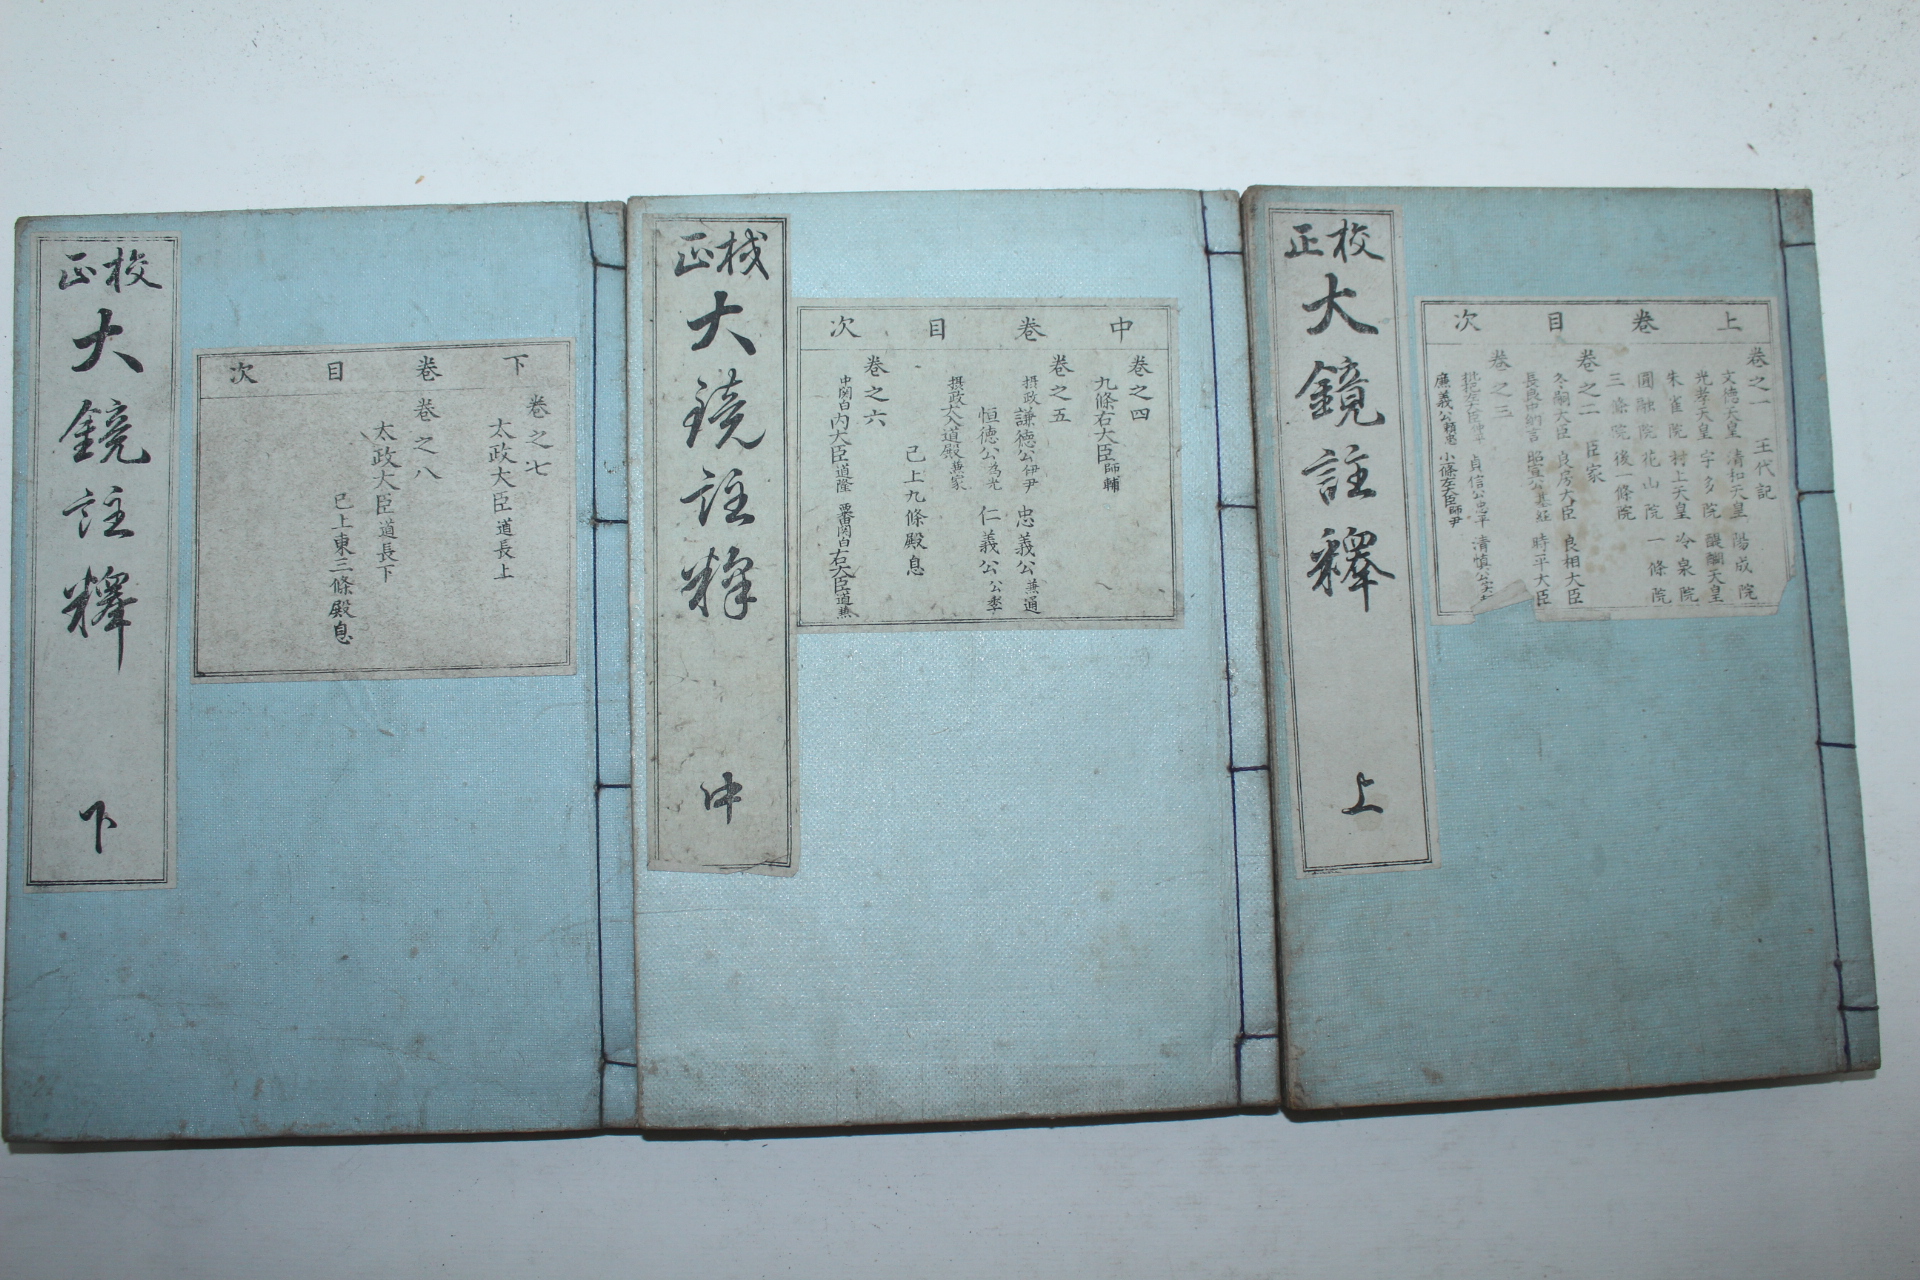 校正
大鏡註釋
上
上卷目次
卷之一 王代記
文德天皇 清和天皇 陽成院
光孝天皇 宇多院 醍醐天皇
朱雀院 村上天皇 冷泉院
圓融院 花山院 一條院
三條院 後一條院
卷之二 臣家
冬嗣大臣 良房大臣 良相大臣
長良中納言 昭宣公基經 時平大臣
卷之三
枇杷左大臣仲平 貞信公忠平 清慎公
廉義公賴忠 小一條左大臣師尹
校正
大鏡註釋
中
中卷目次
卷之四
九條右大臣師輔
卷之五
摂政謙德公伊尹 忠義公兼通
恒德公為光 仁義公公季
摂政太入道殿兼家
已上九條殿息
卷之六
中関白内大臣道隆 粟田関白右大臣道兼
校正
大鏡註釋
下
下卷目次
卷之七
太政大臣道長上
卷之八
太政大臣道長下
已上東三條殿息